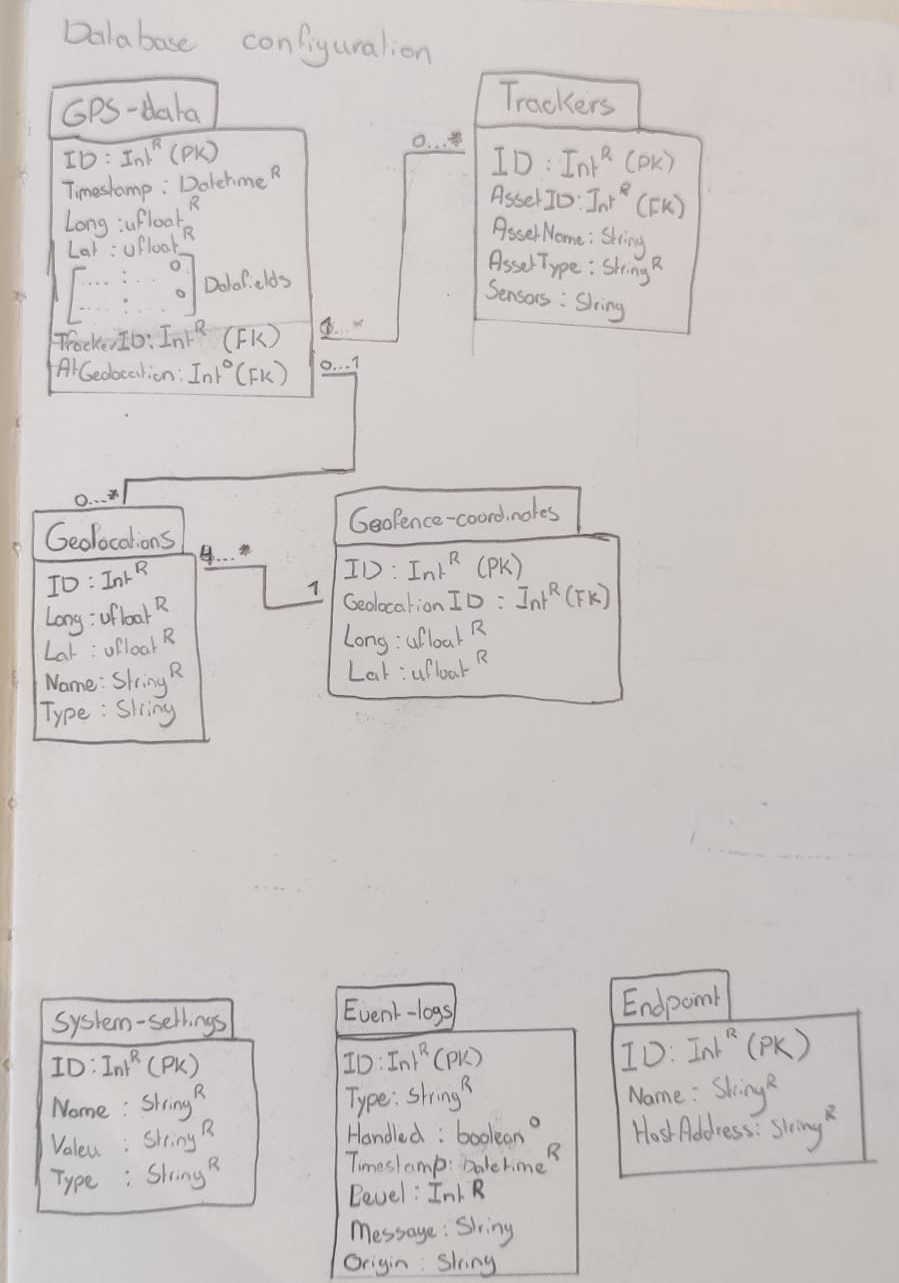 Database configuration
GPS-data
ID : Int R (PK)
Timestamp : Datetime R
Long : ufloat R
Lat : ufloat R
[.... : ... o
... : ... o] Datafields
TrackerID: Int R (FK)
AtGeolocation: Int o (FK)
0...*
1...*
0...1
Trackers
ID : Int R (PK)
AssetID: Int R (FK)
AssetName: String
AssetType : String R
Sensors : String
0...*
Geolocations
ID : Int R
Long : ufloat R
Lat : ufloat R
Name: String R
Type : String
4...*
1
Geofence-coordinates
ID : Int R (PK)
Geolocation ID : Int R (FK)
Long : ufloat R
Lat : ufloat R
System-settings
ID: Int R (PK)
Name : String R
Valeu : String R
Type : String R
Event-logs
ID: Int R (PK)
Type: String R
Handled : boolean o
Timestamp: Datetime R
Level : Int R
Message : String
Origin : String
Endpoint
ID: Int R (PK)
Name : String R
HostAddress: String R